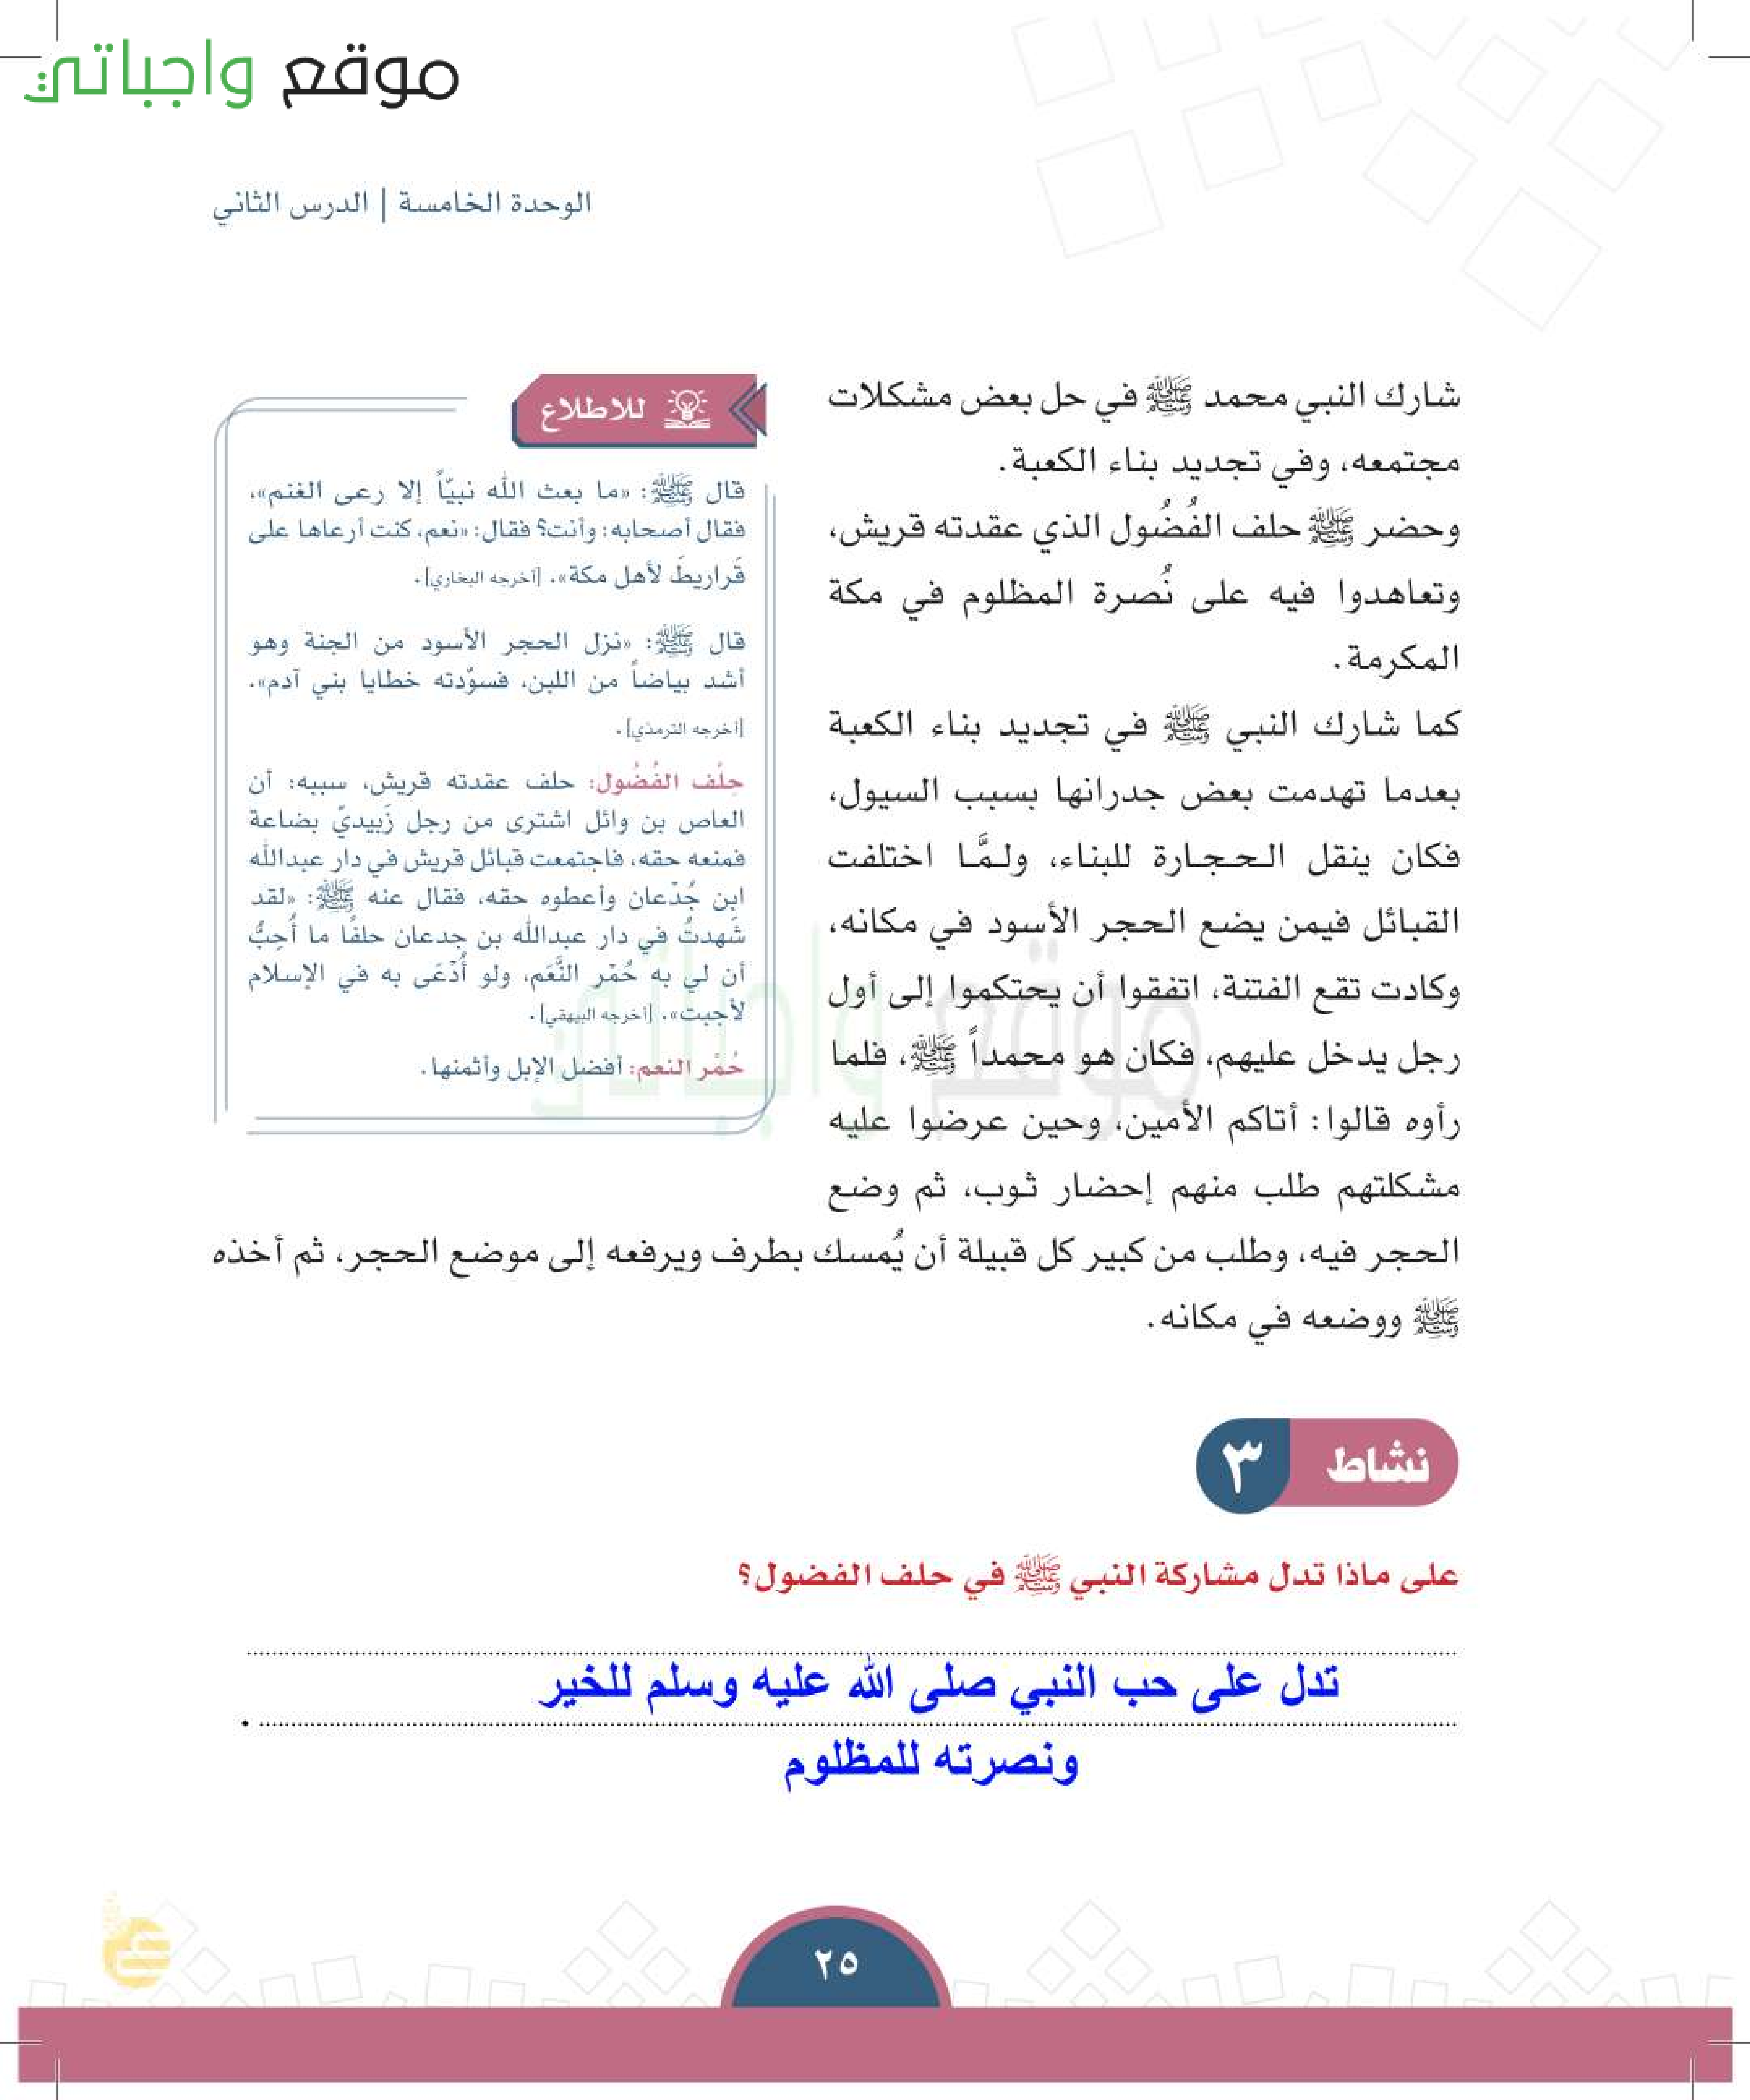 موقع واجباتي
الوحدة الخامسة | الدرس الثاني
شارك النبي محمد ﷺ في حل بعض مشكلات
مجتمعه، وفي تجديد بناء الكعبة.
وحضر ﷺ حلف الفُضُول الذي عقدته قريش،
وتعاهدوا فيه على نُصرة المظلوم في مكة
المكرمة.
كما شارك النبي ﷺ في تجديد بناء الكعبة
بعدما تهدمت بعض جدرانها بسبب السيول،
فكان ينقل الحجارة للبناء، ولمَّا اختلفت
القبائل فيمن يضع الحجر الأسود في مكانه،
وكادت تقع الفتنة، اتفقوا أن يحتكموا إلى أول
رجل يدخل عليهم، فكان هو محمداً ﷺ، فلما
رأوه قالوا: أتاكم الأمين، وحين عرضوا عليه
مشكلتهم طلب منهم إحضار ثوب، ثم وضع
الحجر فيه، وطلب من كبير كل قبيلة أن يُمسك بطرف ويرفعه إلى موضع الحجر، ثم أخذه
ﷺ ووضعه في مكانه.
للاطلاع
قال ﷺ: «ما بعث الله نبيّاً إلا رعى الغنم»،
فقال أصحابه: وأنت؟ فقال: «نعم، كنت أرعاها على
قَراريطَ لأهل مكة». [أخرجه البخاري].
قال ﷺ: «نزل الحجر الأسود من الجنة وهو
أشد بياضاً من اللبن، فسوَّدته خطايا بني آدم».
[أخرجه الترمذي].
حِلْف الفُضُول: حلف عقدته قريش، سببه: أن
العاص بن وائل اشترى من رجل زَبيديّ بضاعة
فمنعه حقه، فاجتمعت قبائل قريش في دار عبدالله
ابن جُدْعان وأعطوه حقه، فقال عنه ﷺ: «لقد
شَهدتُ في دار عبدالله بن جدعان حلفًا ما أُحِبُّ
أن لي به حُمْر النَّعَم، ولو أُدْعَى به في الإسلام
لأجبت». [أخرجه البيهقي].
حُمْر النعم: أفضل الإبل وأثمنها.
موقع واجباتي
نشاط ٣
على ماذا تدل مشاركة النبي ﷺ في حلف الفضول؟
تدل على حب النبي صلى الله عليه وسلم للخير
ونصرته للمظلوم
٢٥